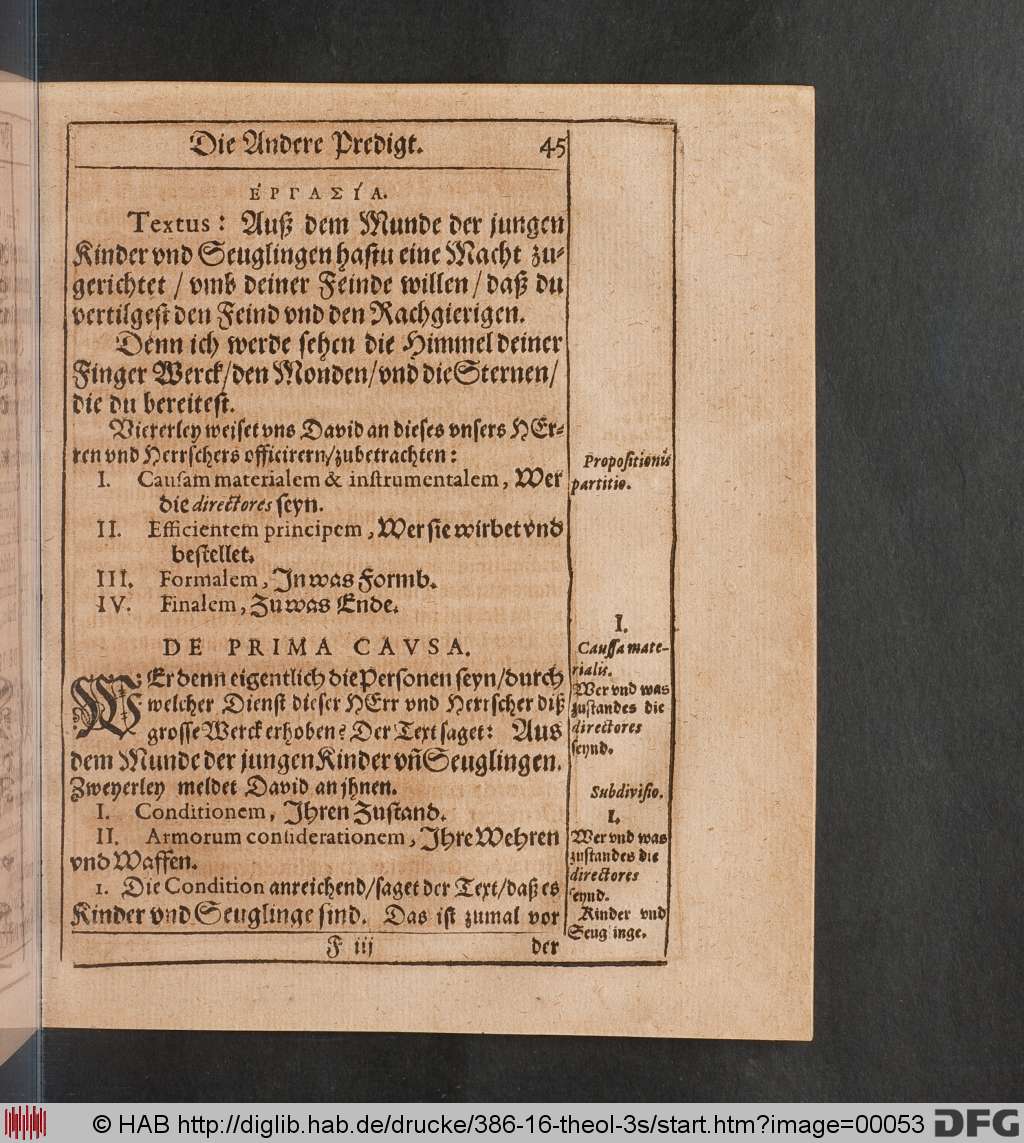 Die Andere Predigt. 45
ἘΡΓΑΣΊΑ.
Textus: Auß dem Munde der jungen
Kinder vnd Seuglingen hastu eine Macht zu-
gerichtet / vmb deiner Feinde willen / daß du
vertilgest den Feind vnd den Rachgierigen.
Denn ich werde sehen die Himmel deiner
Finger Werck/den Monden/vnd die Sternen/
die du bereitest.
Viererley weiset vns David an dieses vnsers HEr-
ren vnd Herrschers officirern/zubetrachten:
I. Causam materialem & instrumentalem, Wer
die directores seyn.
II. Efficientem principem, Wer sie wirbet vnd
bestellet.
III. Formalem, In was Formb.
IV. Finalem, Zu was Ende.
DE PRIMA CAVSA.
WEr denn eigentlich die Personen seyn/durch
welcher Dienst dieser HErr vnd Herrscher diß
grosse Werck erhoben? Der Text saget: Aus
dem Munde der jungen Kinder vn̄ Seuglingen.
Zweyerley meldet David an jhnen.
I. Conditionem, Ihren Zustand.
II. Armorum considerationem, Ihre Wehren
vnd Waffen.
1. Die Condition anreichend/saget der Text/daß es
Kinder vnd Seuglinge sind. Das ist zumal vor
F iij der
Propositionū
partitio.
I.
Caussa mate-
rialis.
Wer vnd was
zustandes die
directores
seynd.
Subdivisio.
I.
Wer vnd was
zustandes die
directores
seynd.
Kinder vnd
Seuglinge.
© HAB http://diglib.hab.de/drucke/386-16-theol-3s/start.htm?image=00053 DFG